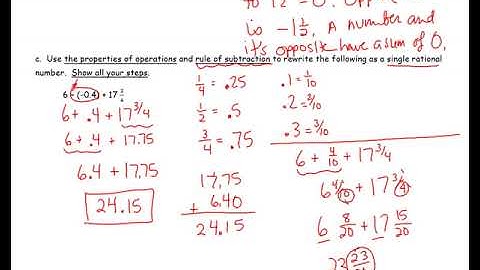 to 12 = 0. Opposite
is -1 1/2. A number and
it's opposite have a sum of 0.
c. Use the properties of operations and rule of subtraction to rewrite the following as a single rational
number. Show all your steps.
6 - (-0.4) + 17 3/4
6 + .4 + 17 3/4
6 + .4 + 17.75
6.4 + 17.75
24.15
1/4 = .25
1/2 = .5
3/4 = .75
17.75
+ 6.40
24.15
.1 = 1/10
.2 = 2/10
.3 = 3/10
6 + 4/10 + 17 3/4
6 4/10 + 17 3/4
6 8/20 + 17 15/20
23 23/